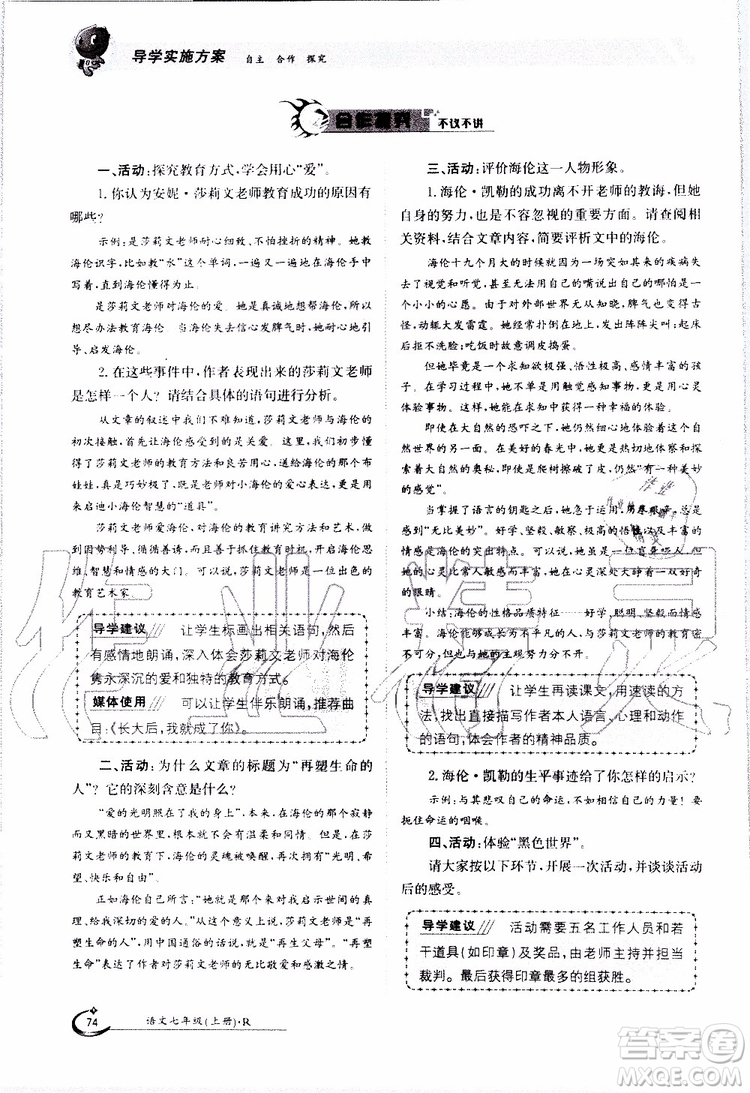 导学实施方案 自主 合作 探究
合作探究 不议不讲
一、活动：探究教育方式，学会用心“爱”。
1. 你认为安妮·莎莉文老师教育成功的原因有
哪些？
示例：是莎莉文老师耐心细致、不怕挫折的精神。她教
海伦识字，比如教“水”这个单词，一遍又一遍地在海伦手中
写，直到海伦学会。
是莎莉文老师对海伦的爱。她是真诚地想帮助海伦，所以
想尽办法教育海伦。当海伦失去信心发脾气时，她耐心地引
导、启发海伦。
2. 在这些事件中，作者表现出来的莎莉文老师
是怎样一个人？请结合具体的语句进行分析。
从文章的叙述中我们不难知道，莎莉文老师与海伦的
初次接触，首先让海伦感受到的是关爱。这里初步懂得了
莎莉文老师的教育方法和良苦用心，送给海伦的那个布
娃娃，真是巧妙极了，它既是对海伦的爱心表达，又是用
来启迪小海伦智慧的“道具”。
莎莉文老师热爱海伦，对海伦的教育讲究方法和艺术，
做到因势利导、循循善诱，而且富有创造性，启开了海伦思
维、智慧和情感的大门。可以说，莎莉文老师是一位出色的
教育艺术家。
导学建议 让学生标画出相关语句，然后
有感情地朗诵，深入体会莎莉文老师对海伦
隽永深沉的爱和独特的教育方式。
媒体使用 可以让学生伴乐朗诵，推荐曲
目：《长大后，我就成了你》。
二、活动：为什么文章的标题为“再塑生命的
人”？它的深刻含意是什么？
“爱的光明照在了我的身上”，本来，在海伦的那个寂静
而又黑暗的世界里，根本不会有温柔和同情。但在莎莉
文老师的教育下，海伦的灵魂被唤醒，并拥有“光明、希
望、快乐和自由”。
正如海伦自己所言：“她就是那个来对我启示世间的真
理、给我深切的爱的人”，所以莎莉文老师是真正的“再塑
生命的人”，用中国通俗的话说就是“再生父母”。“再塑
生命”表达了作者对莎莉文老师的无比敬爱和感激之情。
三、活动：评价海伦这一人物形象。
1. 海伦·凯勒的成功离不开老师的教诲，但她
自身的努力，也是不容忽视的重要方面。请查阅相
关资料，结合文章内容，简要评析文中的海伦。
海伦十九个月大的时候因为一场突如其来的疾病失
去了视觉和听觉，甚至不能使用自己的嘴说出自己的一
个小小的心愿。由于对外部世界无从知晓，脾气变得古
怪，动辄大发雷霆。生气时，她会发出阵阵尖叫；起床
后拒不洗脸；吃饭时故意调皮捣蛋。
但她毕竟是一个求知欲极强、悟性极高、感情丰富的孩
子。在学习过程中，她不但用手触摸感知事物，更是用心灵
体验事物，从而获得了丰富的体验。
在大自然的恐吓下瑟瑟发抖，她仍然无阻于她对自
然世界的向往。在美好的春光中，她尽情地用触觉体察、
探索大自然的奥秘，即使爬树擦破了皮，仍然“有一种美妙
的感觉”。
当掌握了语言的钥匙之后，她急于运用，历尽艰辛，总是
感到“无比美妙”。好学、坚毅、敏察、极高的悟性以及丰富的
情感是海伦的突出特点。可以说，她虽是一个盲聋哑人，但
她的感知能力常人难以企及，因为在心灵深处大大地睁开着她
的眼睛。
小结：海伦的性格品质特征——好学、聪明、坚毅、情感
丰富，海伦能够成长为不平凡的人，与莎莉文老师的教育密
不可分，与她的主观努力密不可分。
导学建议 让学生再读课文，用速读的方
法，找出直接描写作者本人语言、心理和动作
的语句，体会作者的精神品质。
2. 海伦·凯勒的生平事迹给了你怎样的启示？
示例：与其悲叹自己的命运，不如相信自己的力量，要
扼住命运的咽喉。
四、活动：体验“黑色世界”。
请大家按以下环节，开展一次活动，并谈谈活动
后的感受。
导学建议 活动需要五名工作人员和若
干道具（如印章）及奖品，由老师主持并担当
裁判。最后获得印章最多的组获胜。
74 语文七年级（上册）·R
作业精灵
答案圈
MXQE.COM